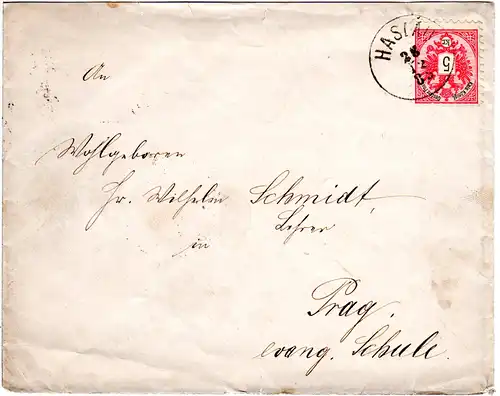 HASLAU
28
12
83
5
An
Wohlgeboren
Hr. Wilhelm Schmidt,
Lehrer
in
Prag.
evang. Schule.